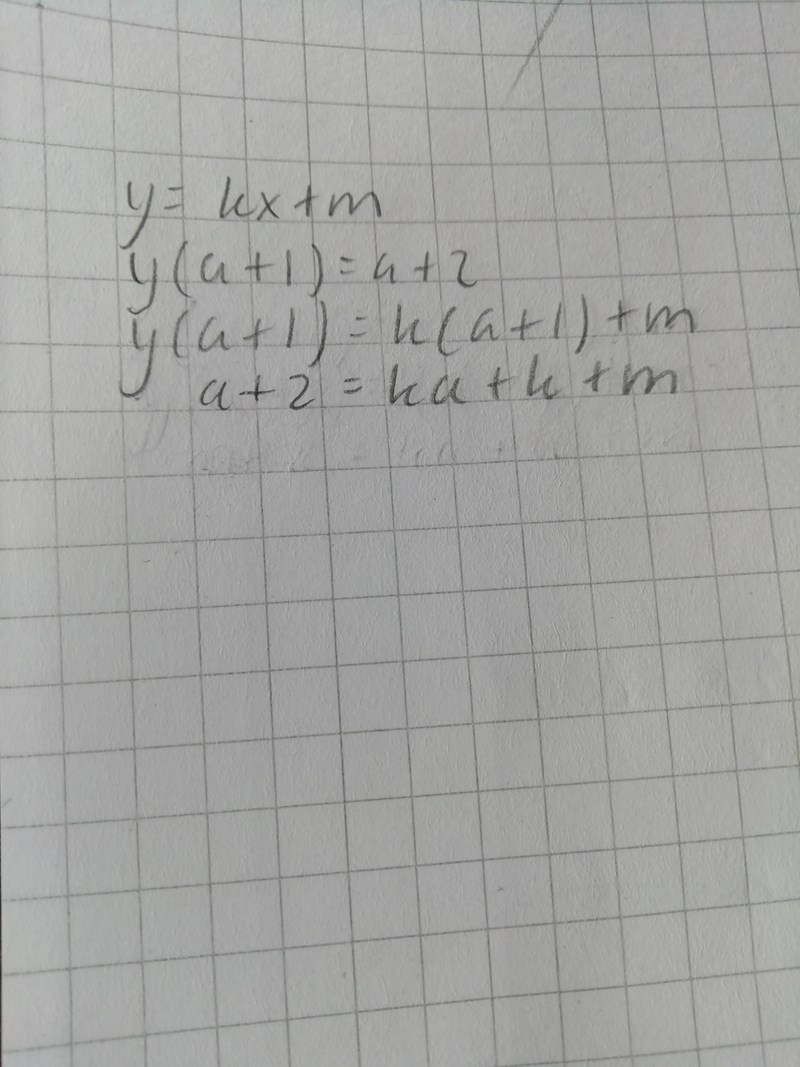 y = kx + m
y(a + 1) = a + 2
y(a + 1) = k(a + 1) + m
a + 2 = ka + k + m